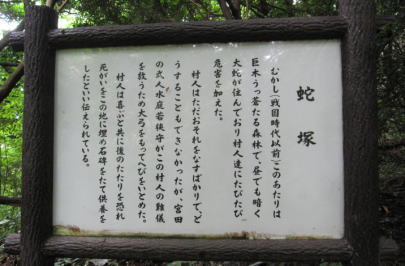 蛇塚
むかし(戦国時代以前)このあたりは
巨木うっ蒼たる森林で、昼でも暗く
大蛇が住んでおり村人達にたびたび
危害を加えた。
村人はただおそれをなすばかりで、ど
うすることもできなかったが、宮田
の弌人水庭若狭守がこの村人の難儀
を救うため大弓をもってヘびをいとめた。
村人は喜ぶと共に後のたたりを恐れ
死がいをこの地に埋め石碑をたて供養を
したといい伝えられている。